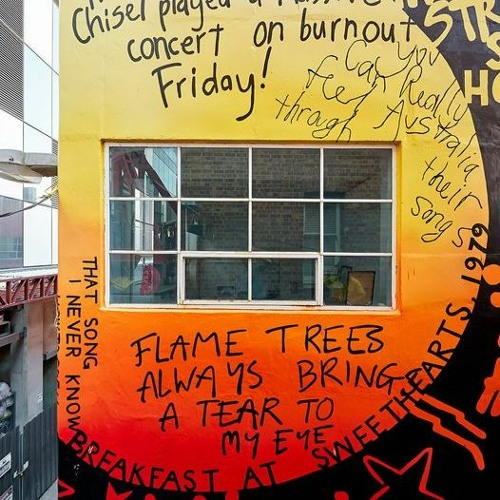 Chisel played a
concert on burnout
Friday!
Can you
really
feel Australia
through
their
songs
STR
S
HO
THAT SONG
I NEVER KNOW
FLAME TREES
ALWAYS BRING
A TEAR TO
MY EYE
BREAKFAST AT SWEETHEARTS, 1979